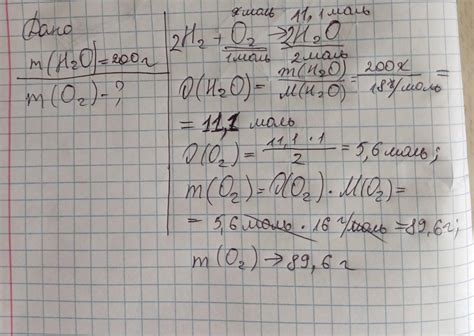 Дано
m(H₂O)=200г
m(O₂)-?
x моль 11,1 моль
2H₂ + O₂ → 2H₂O
1 моль 2 моль
υ(H₂O) = m(H₂O)/M(H₂O) = 200г/18г/моль =
= 11,1 моль
υ(O₂) = 11,1 · 1/2 = 5,6 моль;
m(O₂) = υ(O₂) · M(O₂) =
= 5,6 моль · 16 г/моль = 89,6 г;
m(O₂) → 89,6 г